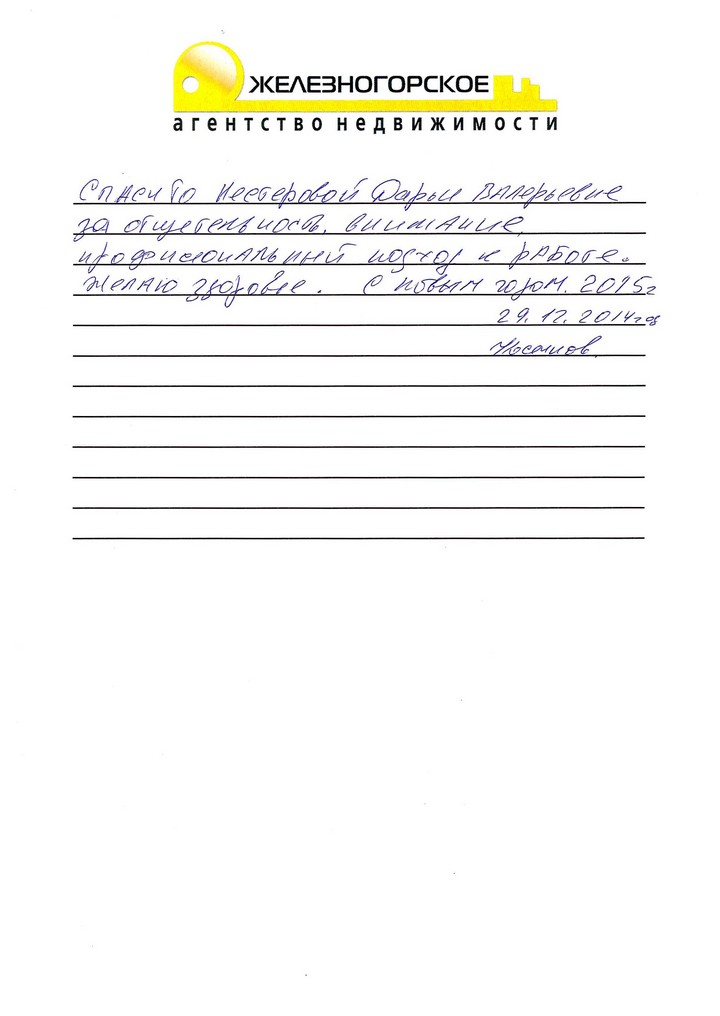 ЖЕЛЕЗНОГОРСКОЕ
агентство недвижимости
Спасибо Нестеровой Дарьи Валерьевне
за отщетельность, внимание,
профисиональный подход к работе.
Желаю здоровье. С новым годом. 2015г
29.12.2014год